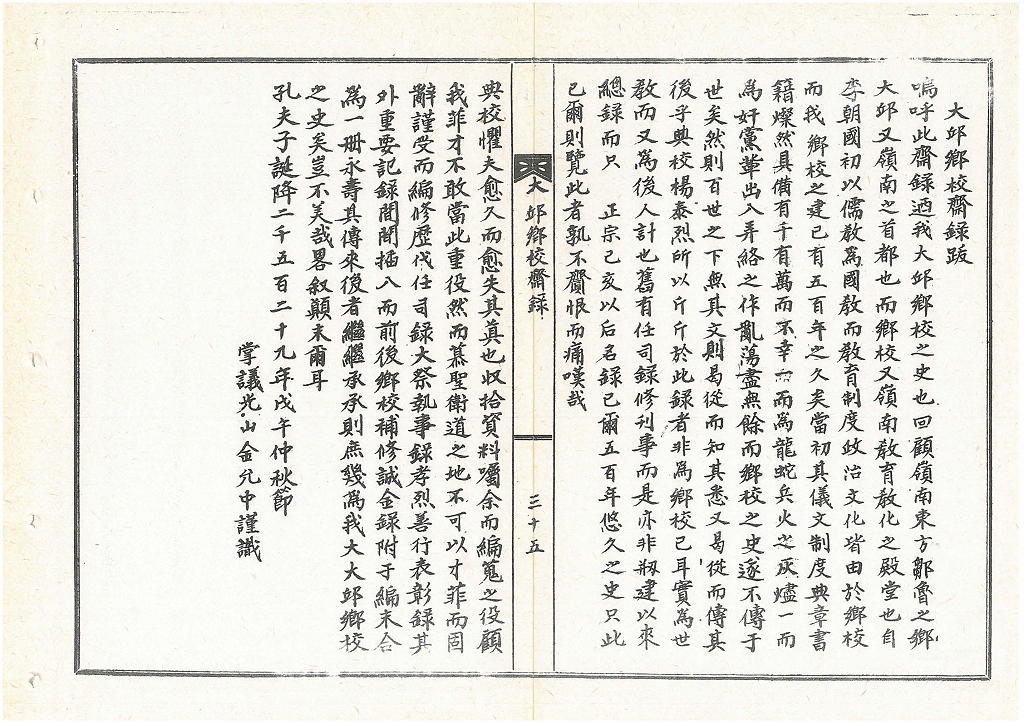 大邱鄉校齋錄跋
嗚呼此齋錄迺我大邱鄉校之史也回顧嶺南東方鄒魯之鄉
大邱又嶺南之首都也而鄉校又嶺南教育教化之殿堂也自
李朝國初以儒教爲國教而教育制度政治文化皆由於鄉校
而我鄉校之建已有五百年之久矣當初其儀文制度典章書
籍燦然具備有千有萬而不幸一而爲龍蛇兵火之灰燼一而
爲奸黨輩出入弄絡之作亂蕩盡無餘而鄉校之史遂不傳于
世矣然則百世之下無其文則曷從而知其悉又曷從而傳其
後乎典校楊泰烈所以斤斤於此錄者非爲鄉校已耳實爲世
教而又爲後人計也舊有任司錄修刊事而是亦非刱建以來
總錄而只 正宗己亥以后名錄已爾五百年悠久之史只此
已爾則覽此者孰不齎恨而痛嘆哉
大邱鄉校齋錄
三十五
典校懼夫愈久而愈失其眞也收拾資料囑余而編蒐之役顧
我菲才不敢當此重役然而慕聖衛道之地不可以才菲而固
辭謹受而編修歷代任司錄大祭執事錄孝烈善行表彰錄其
外重要記錄間間揷入而前後鄉校補修誠金錄附于編末合
爲一册永壽其傳來後者繼繼承承則庶幾爲我大大邱鄉校
之史矣豈不美哉畧叙顛末爾耳
孔夫子誕降二千五百二十九年戊午仲秋節
掌議光山金允中謹識